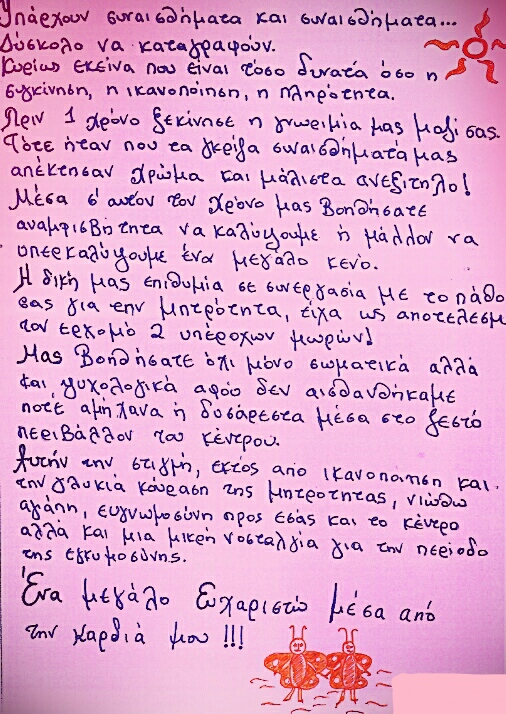 Υπάρχουν συναισθήματα και συναισθήματα...
Δύσκολο να καταγραφούν.
Κυρίως εκείνα που είναι τόσο δυνατά όσο η
συγκίνηση, η ικανοποίηση, η πληρότητα.
Πριν 1 χρόνο ξεκίνησε η γνωριμία μας μαζί σας.
Τότε ήταν που τα γκρίζα συναισθήματά μας
απέκτησαν χρώμα και μάλιστα ανεξίτηλο!
Μέσα σ' αυτόν τον χρόνο μας βοηθήσατε
αναμφισβήτητα να καλύψουμε ή μάλλον να
υπερκαλύψουμε ένα μεγάλο κενό.
Η δική μας επιθυμία σε συνεργασία με το πάθο
σας για την μητρότητα, είχα ως αποτέλεσμ
τον ερχομό 2 υπέροχων μωρών!
Μας βοηθήσατε όχι μόνο σωματικά αλλά
και ψυχολογικά αφού δεν αισθανθήκαμε
ποτέ αμήχανα ή δυσάρεστα μέσα στο ζεστό
περιβάλλον του κέντρου.
Αυτήν την στιγμή, εκτός από ικανοποίηση και
την γλυκιά κούραση της μητρότητας, νιώθω
αγάπη, ευγνωμοσύνη προς εσάς και το κέντρο
αλλά και μια μικρή νοσταλγία για την περίοδο
της εγκυμοσύνης.
Ένα μεγάλο Ευχαριστώ μέσα από
την καρδιά μου!!!